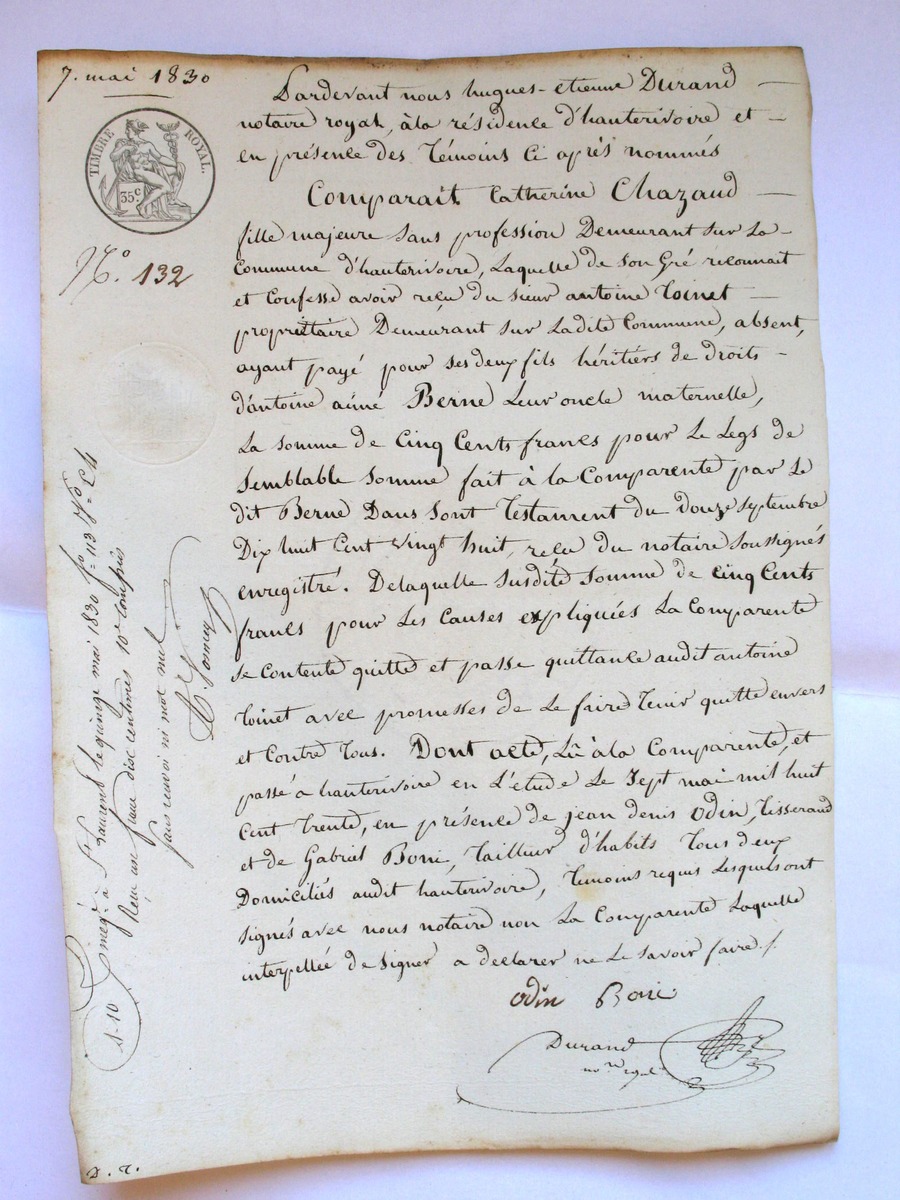 7. mai 1830
TIMBRE ROYAL.
35 c
N.° 132
Pardevant nous hugues-etienne Durand
notaire royal, à la résidence d'hauterivoire et
en présence des Témoins Ci après nommés
Comparait Catherine Chazaud
fille majeure sans profession Demeurant sur La
Commune d'hauterivoire, Laquelle de son Gré reconnait
et Confesse avoir reçu du sieur antoine Toinet
propriétaire Demeurant sur Ladite Commune, absent,
ayant payé pour ses deux fils héritiers de droits
d'antoine aimé Berne Leur oncle maternelle,
La somme de Cinq Cents francs pour Le Legs de
semblable somme fait à la Comparente par Le
dit Berne Dans sont Testament du douze septembre
Dix huit Cent vingt huit, reçu du notaire soussignés
enregistré. Delaquelle susdite somme de cinq Cents
francs pour Les Causes expliquées La Comparente
se Contente quitte et passe quittance audit antoine
Toinet avec promesses de Le faire Tenir quitte envers
et Contre Tous. Dont acte, Lû à la Comparente, et
passé a hauterivoire en L'étude Le Sept mai mil huit
Cent Trente, en présence de jean denis Odin, Tisserand
et de Gabriel Boni, Tailleur d'habits Tous deux
Domiciliés audit hauterivoire, Témoins requis Lesquels ont
signés avec nous notaire non La Comparente Laquelle
interpellée de signer a déclarer ne Le savoir faire /.
Odin Boni
Durand
no.re royal
Enreg.é à S.t Laurent le quinze mai 1830 f.o 113 V.o C 4
Reçu un franc dix centimes 10e compris
sans renvoi ni mot nul
1-10
D. T.